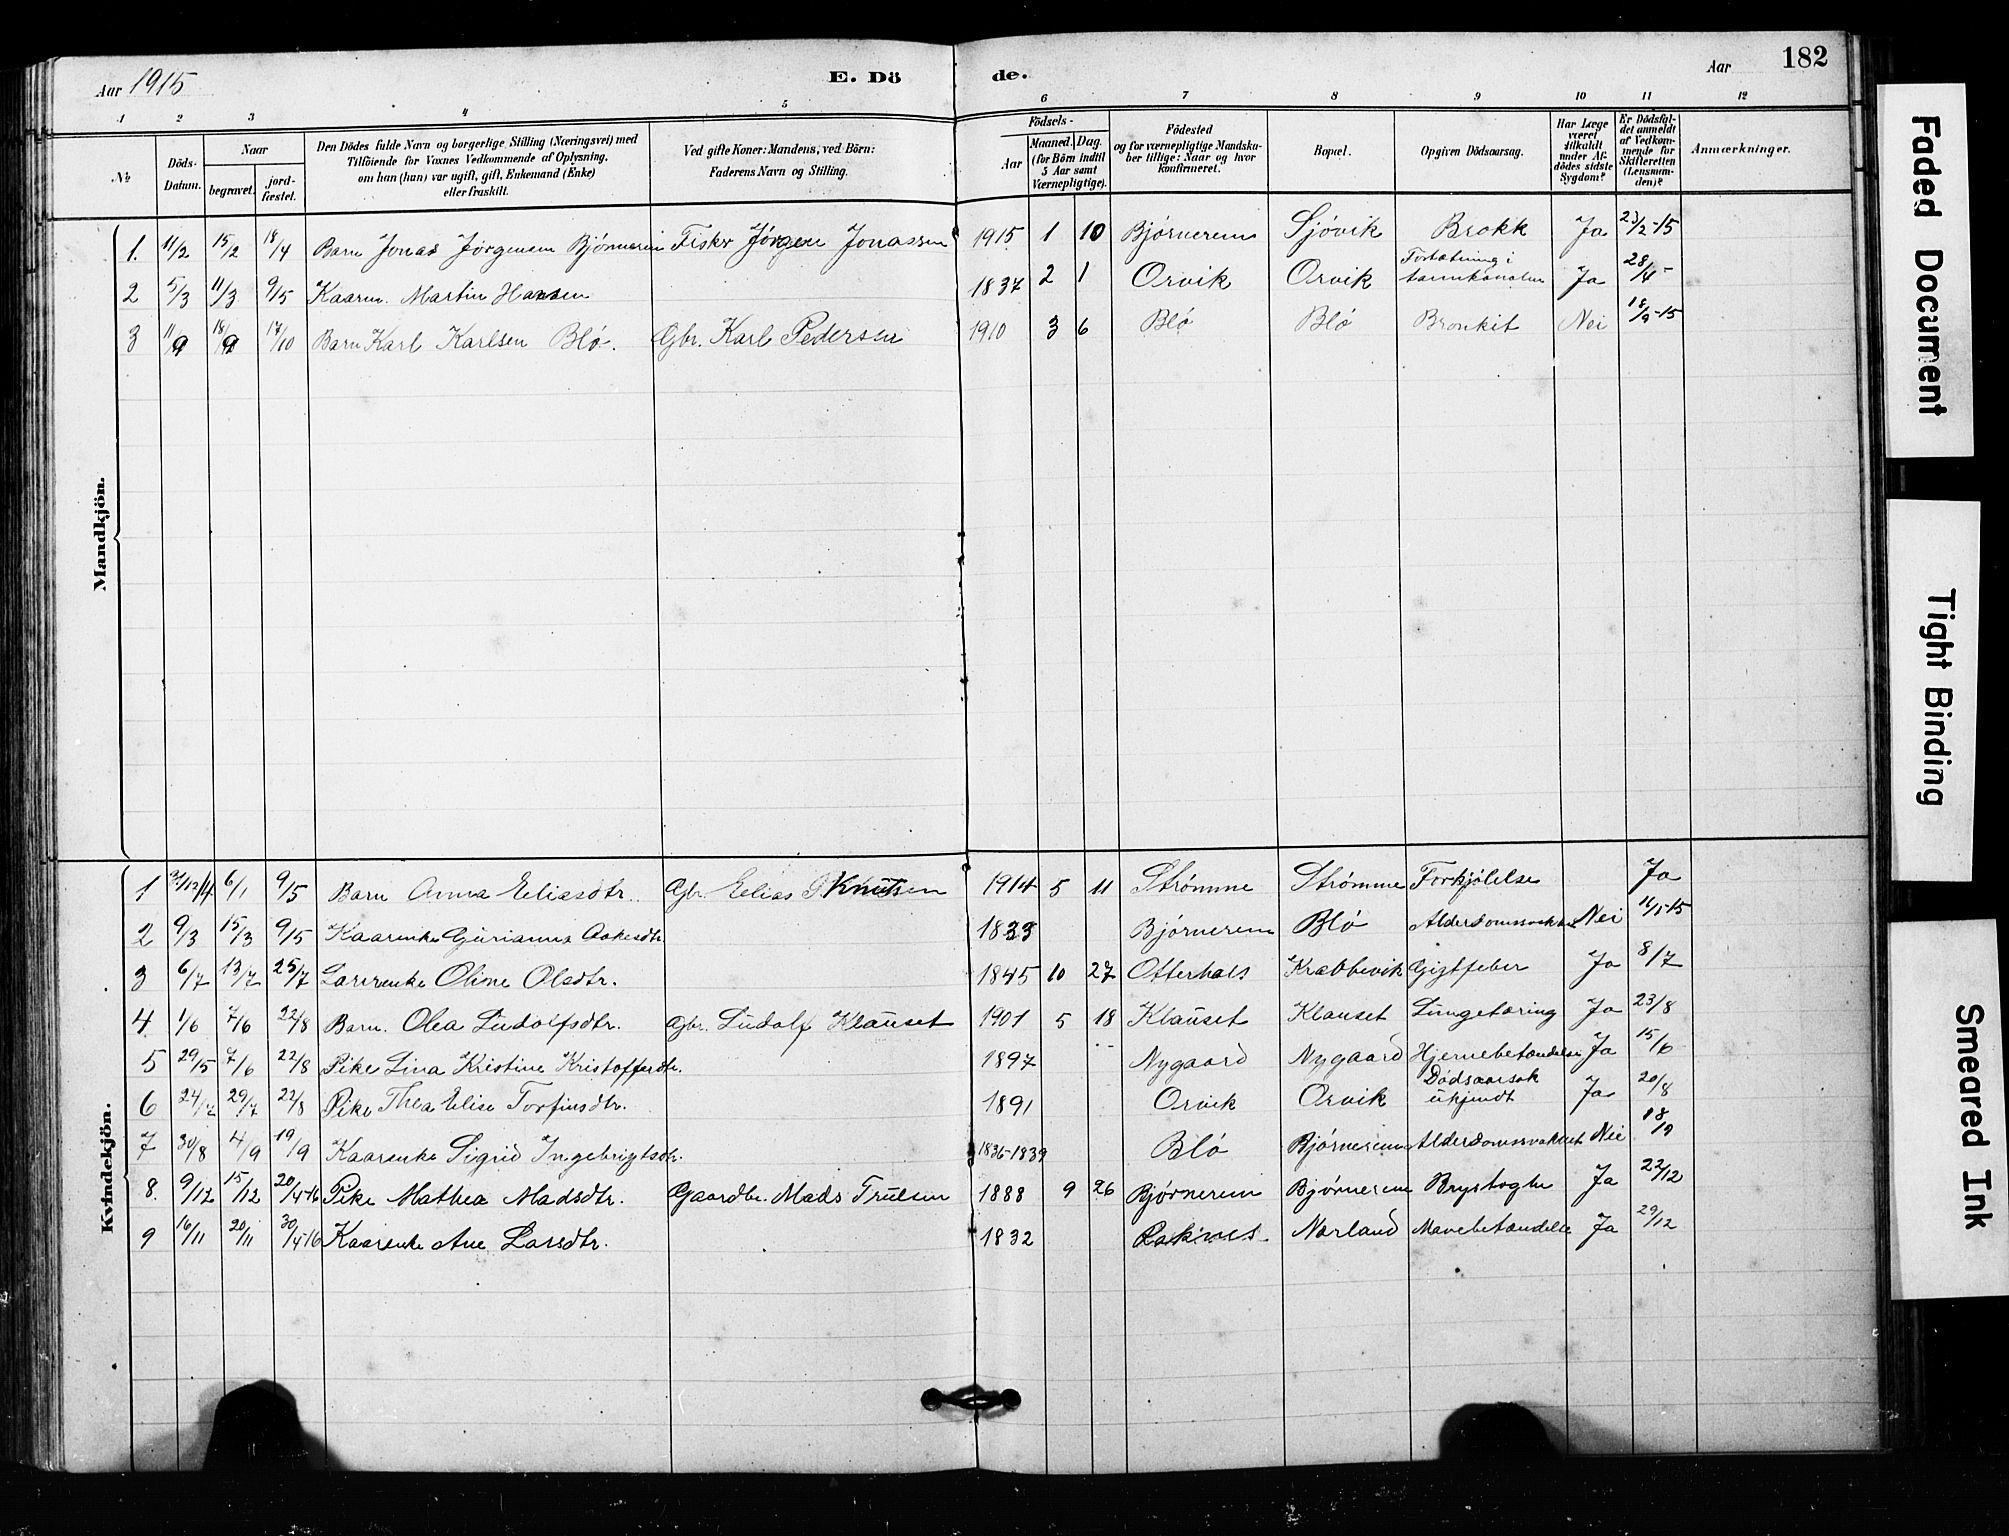 Aar 1915
E. Dö
de.
Aar
182
1 2 3 4 5 6 7 8 9 10 11 12
№
Döds-Datum.
Naar
begravet.
jord-fæstet.
Den Dödes fulde Navn og borgerlige Stilling (Næringsvei) med
Tilföiende for Voxnes Vedkommende af Oplysning,
om han (hun) var ugift, gift, Enkemand (Enke)
eller fraskilt.
Ved gifte Koner: Mandens; ved Börn:
Faderens Navn og Stilling.
Födsels-
Aar
Maaned. Dag.
(for Börn indtil
5 Aar samt
Værnepligtige).
Födested
og for værnepligtige Mandska-
ber tillige: Naar og hvor
konfirmeret.
Bopæl.
Opgiven Dödsaarsag.
Har Læge
været
tilkaldt
under Af-
dödes sidste
Sygdom?
Er Dödsfal-
det anmeldt
af Vedkom-
mende for
Skifteretten
(Lensman-
den)?
Anmærkninger.
Mandkjön.
1. 11/2 15/2 18/4 Barn Jonas Jørgensen Bjørnerem Fisker Jørgen Jonassen 1915 1 10 Bjørnerem Sjøvik Brokk Ja 23/2-15
2 5/3 11/3 9/5 Kaarm. Martin Hansen 1837 2 1 Orvik Orvik Fortætning i tarmkanalen Ja 28/4-
3 11/9 18/9 17/10 Barn Karl Karlsen Blø. Gbr. Karl Pedersen 1910 3 6 Blø Blø Bronkit Nei 18/9-15
Kvindekjön.
1 6/1 9/5 Barn Anna Eliasdtr. Gbr. Elias Knutsen 1914 5 11 Strømme Strømme Forkjølelse Ja
2 9/3 15/3 9/5 Kaarenke Gurianna Aakesdtr. 1833 Bjørnerem Blø Nei
3 6/7 13/7 25/7 Oline Olsdtr. 1845 10 27 Otterhals Krabbevik Gigtfeber Ja 8/7
4. 1/6 7/6 22/8 Barn. Olea Ludolfsdtr. Gbr. Ludolf Klauset 1901 5 18 Klauset Klauset Lungetæring Ja 23/8
5 29/5 7/6 22/8 Pike Lina Kristine Kristoffersdtr. 1897 Nygaard Nygaard Hjernebetændelse Ja 15/6
6 24/7 29/7 22/8 Pike Thea Elise Torfinsdtr. 1891 Orvik Orvik Dødsaarsak ukjendt Ja 20/8
7 30/8 4/9 19/9 Kaarenke Sigrid Ingebrigtsdtr. 1836-1839 Blø Bjørnerem Alderdomssvakhet Nei 18/9
8. 9/12 15/12 20/4-16 Pike Mathea Madsdtr. Gaardbr. Mads Trulsen 1888 9 26 Bjørnerem Bjørnerem Ja 22/12
9 16/11 20/11 30/4-16 Kaarenke Ane Larsdtr. 1832 Raknes Nørland Mavebetændelse Ja 29/12
Faded Document
Tight Binding
Smeared Ink